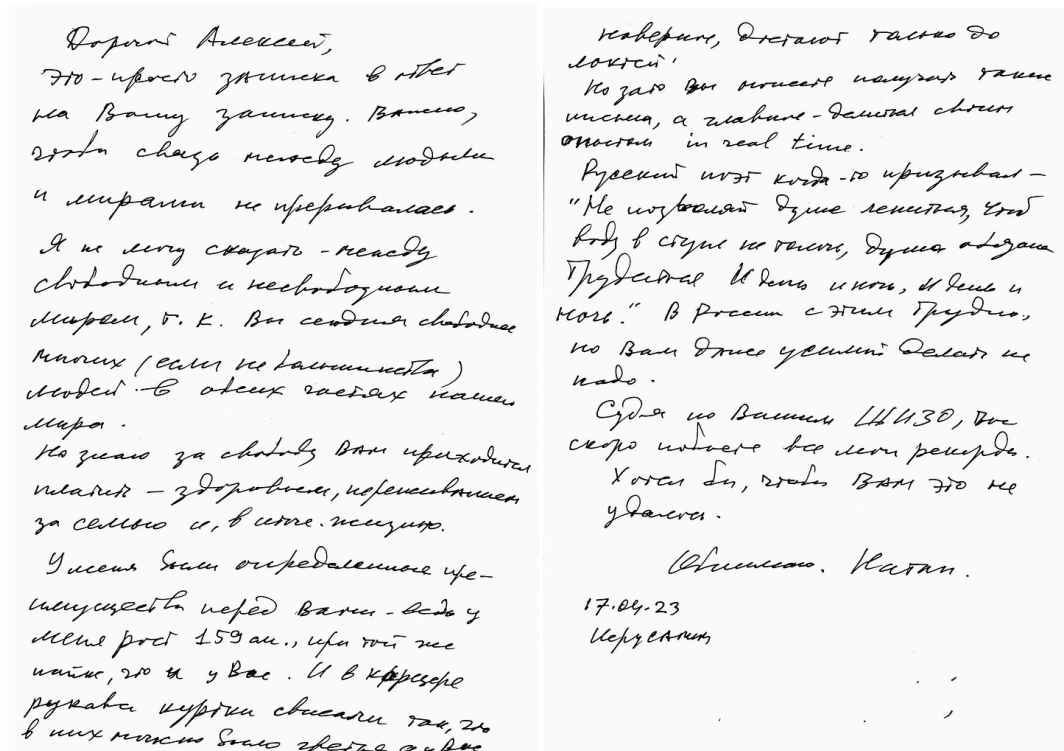 Дорогой Алексей,
Это - просто записка в ответ
на Вашу записку. Важно,
чтобы связь между людьми
и мирами не прерывалась.
Я не могу сказать - между
свободным и несвободным
миром, т. к. Вы сегодня свободнее
многих (если не большинства)
людей в обеих частях нашего
мира.
Но знаю за свободу Вам приходится
платить - здоровьем, переживанием
за семью и, в итоге - жизнью.
У меня были определенные пре-
имущества перед Вами - ведь у
меня рост 159 см., при той же
пайке, что и у Вас. И в карцере
рукава куртки свисали так, что
в них можно было греться, а у Вас
наверное, достают только до
локтей.
Но зато Вы можете получать такие
письма, а главное - делиться своим
опытом in real time.
Русский поэт когда-то призывал -
"Не позволяй душе лениться, чтоб
воду в ступе не толочь, душа обязана
трудиться И день и ночь, и день и
ночь." В России с этим трудно,
но Вам даже усилий делать не
надо.
Судя по Вашим ШИЗО, Вы
скоро побьете все мои рекорды.
Хотел бы, чтобы Вам это не
удалось.
Обнимаю. Натан.
17.04.23
Иерусалим